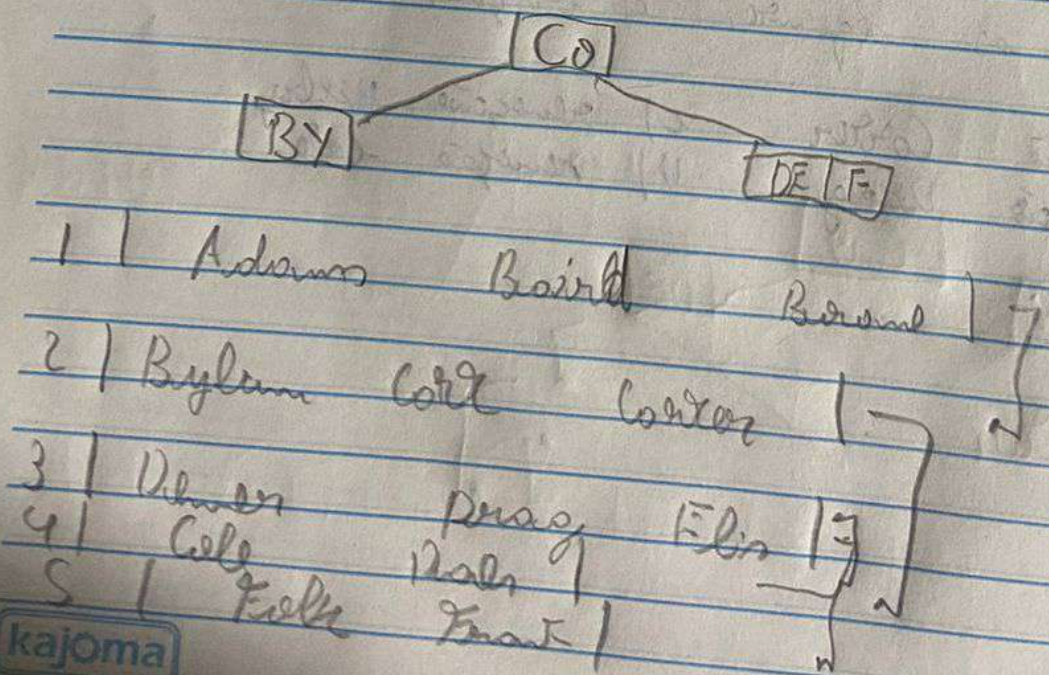 Co
BY DE F
1 Adams Baird Browne
2 Bylum Cort Carter
3 Denver Drag Elis
4 Cole Dale
5 Folk Frost
kajoma